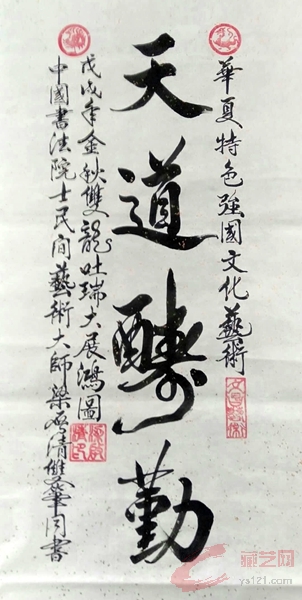 華夏特色強國文化藝術
天道酬勤
戊戌年金秋雙龍吐瑞大展鴻圖
中國書法院士民間藝術大師梁啟清雙筆同書
藏艺网
ys121.com